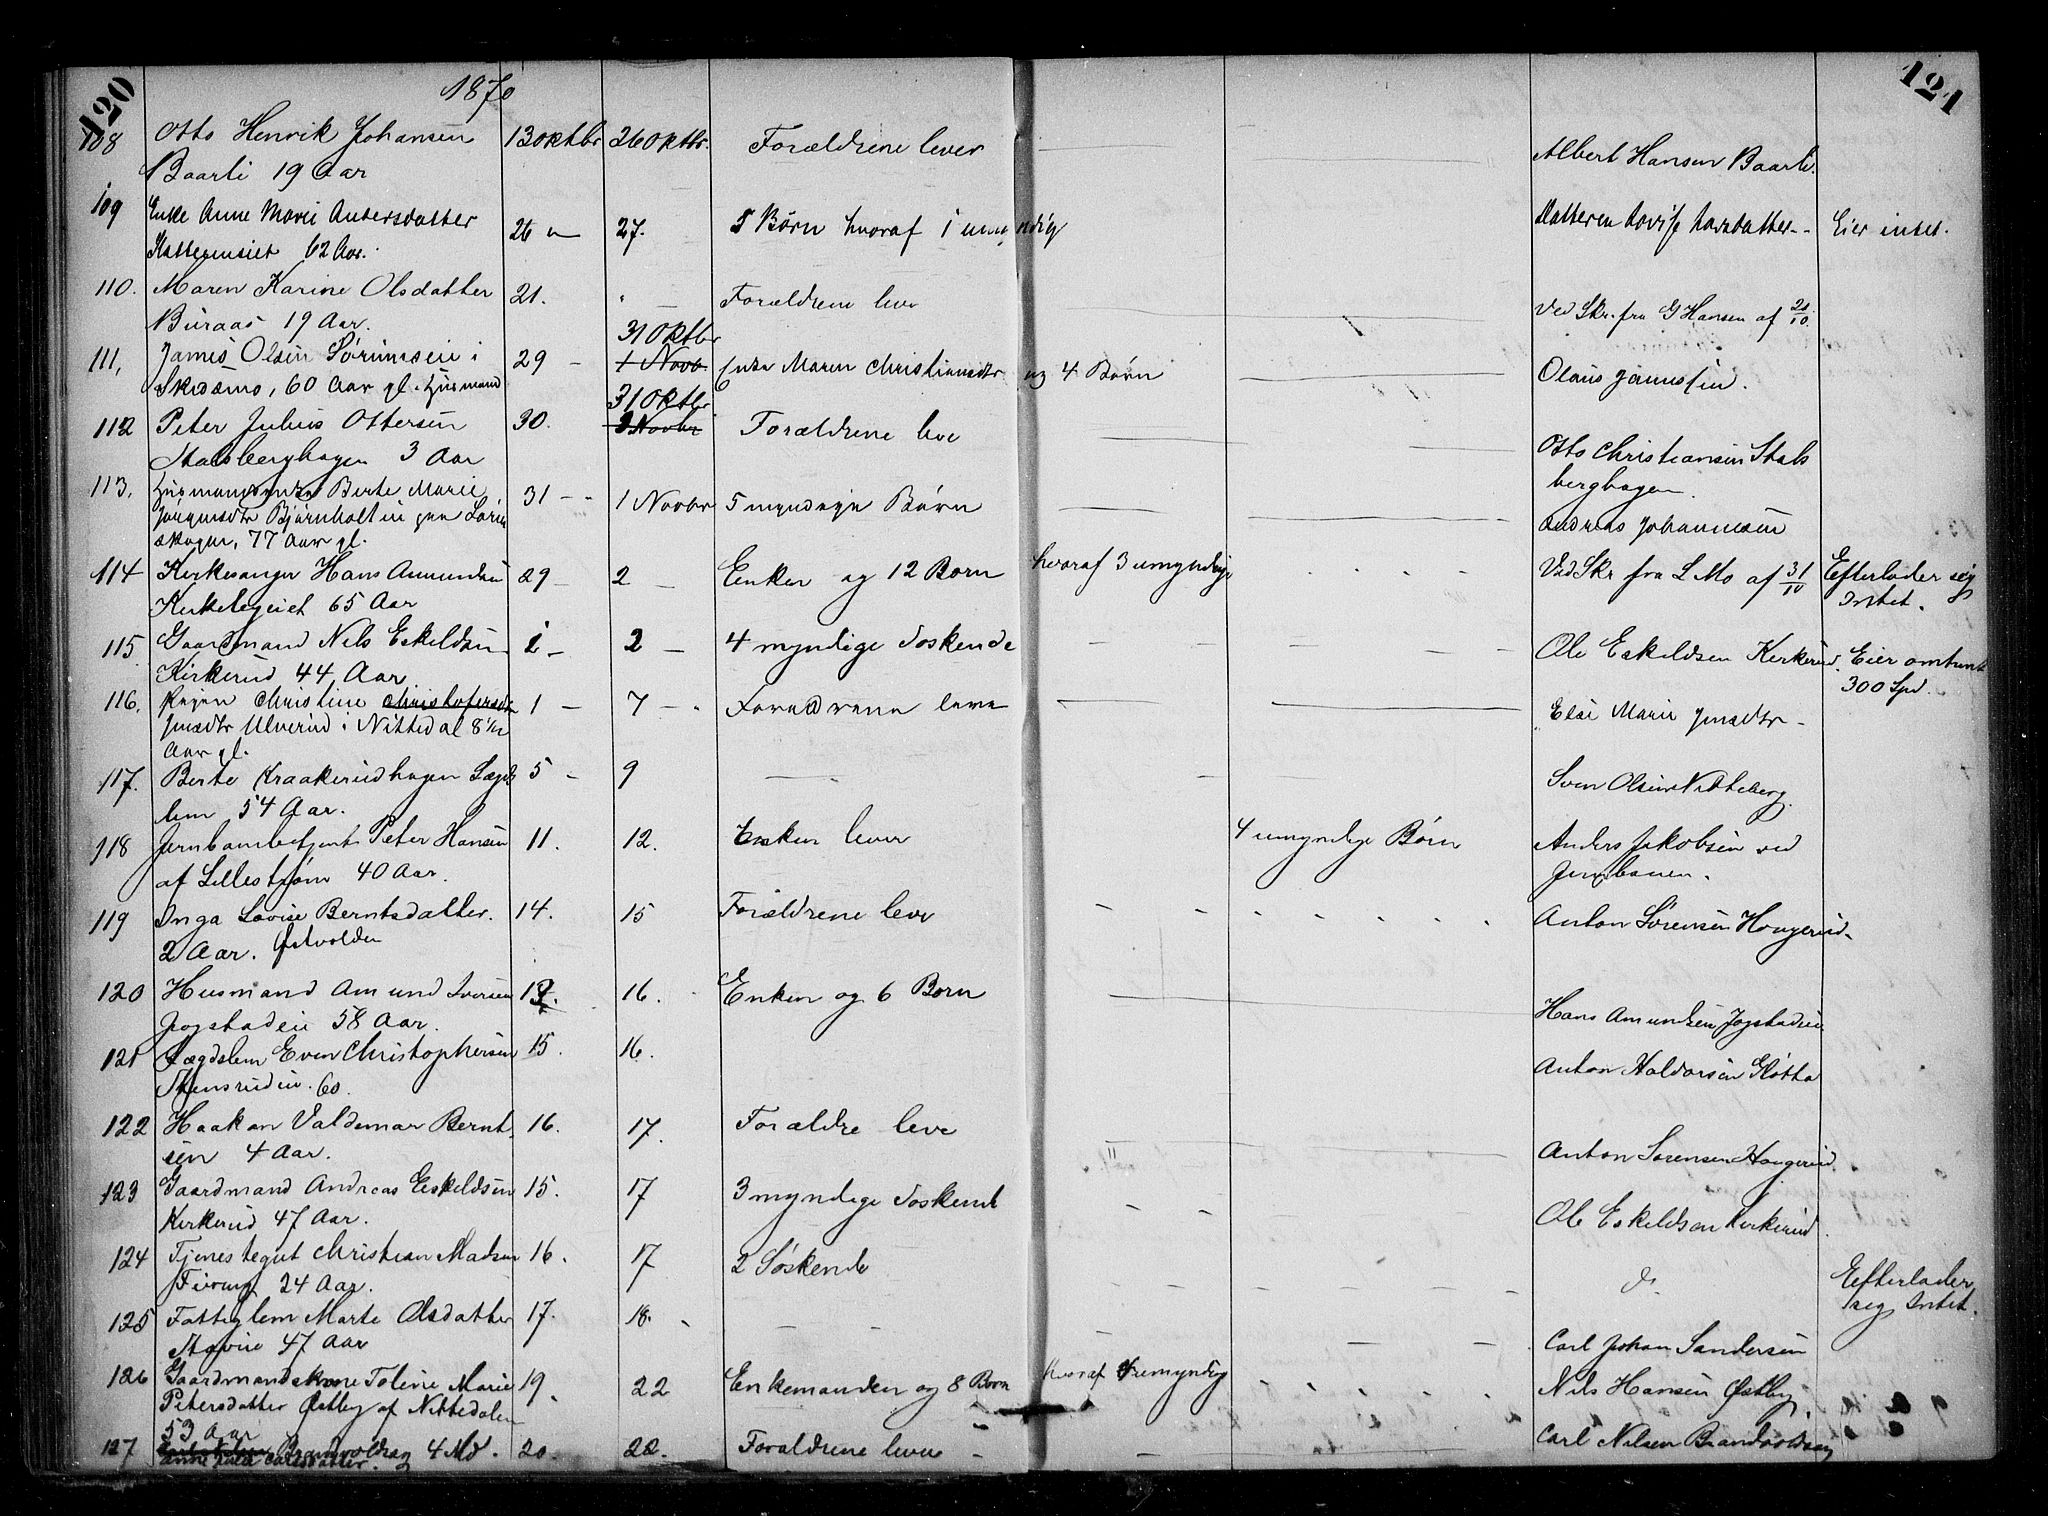 120
1870
121
108 Otto Henrik Johansen 13 oktbr 26 Oktbr. Forældrene lever Albert Hansen Baarli.
Baarli 19 Aar
109 Enke Anne Marie Andersdatter 26 27. 5 Børn hvoraf 1 umyndig Datteren Lovise Larsdatter Eier intet.
62 Aar.
110. Maren Karine Olsdatter 21. Forældrene leve Ved Skr. fra G Hansen af 21/10.
Buraas 19 Aar.
31 Oktbr
111, James Olsen Sørumseie i 29 1 Novb. Enke Maren Christiansdtr og 4 Børn Olaus Jamessen.
Skedsmo, 60 Aar gl. Husmand
31 Oktbr
112 Peter Julius Ottersen 30. Novbr Forældrene leve Otto Christiansen Stals
Stalsberghagen 3 Aar berghagen.
113. Husmandsenke Berte Marie 31 1 Novbr 5 myndige Børn Andreas Johannesen
Bjørnholteie paa Lørens
skogen, 77 Aar gl.
114 Kirkesanger Hans Amundsen 29 2 Enken og 12 Børn hvoraf 3 umyndige Ved Skr fra L Mo af 31/10 Efterlader sig
Kirkelygeiet 65 Aar Intet.
115 Gaardmand Nils Eskildsen 1 2 4 myndige Søskende Ole Eskildsen Kirkerud. Eier omtrent
Kirkerud 44 Aar 300 Spd.
116. Pigen Christine Christofersdtr 1 7 Forældrene leve Else Marie Jensdtr
Jensdtr Ulverud i Nittedal 8 1/2
Aar gl.
117. Berte Kraakerudhagen Lægds 5 9 Sven Olsen Nitteberg.
lem 54 Aar.
118 Jernbanebetjent Peter Hansen 11. 12. Enken lever 4 umyndige Børn Anders Jakobsen ved
af Lillestrøm 40 Aar. Jernbanen.
119 Inga Lovise Berntsdatter. 14. 15 Forældrene leve Anton Sørensen Haugerud
2 Aar. Østvolden
120 Husmand Amund Iversen 12. 16. Enken og 6 Børn Hans Amundsen Jogstadeie
Jogstadeie 58 Aar.
121 Lægdslem Even Christophersen 15. 16. Anton Haldorsen Gløtta
Stensrudeie. 60.
122 Haakon Valdemar Bernt 16. 17. Forældre leve Anton Sørensen Haugerud
sen 4 Aar.
123 Gaardmand Andreas Eskildsen 15. 17 3 myndige Søskende Ole Eskildsen Kirkerud.
Kirkerud 47 Aar.
124 Tjenestegut Christian Madsen 16. 17 2 Søskende do Efterlader
24 Aar. sig Intet.
125 Fattiglem Marte Olsdatter 17. 18. Carl Johan Sandersen
47 Aar
126 Gaardmandskone Toline Marie 19. 22 Enkemanden og 8 Børn hvoraf 4 umyndig Nils Hansen Østby
Petersdatter Østby af Nittedalen
53 Aar
127 Brandvoldhag 4 Md. 20. 22. Forældrene leve Carl Nilsen Brandvoldhag
Carlsdatter.